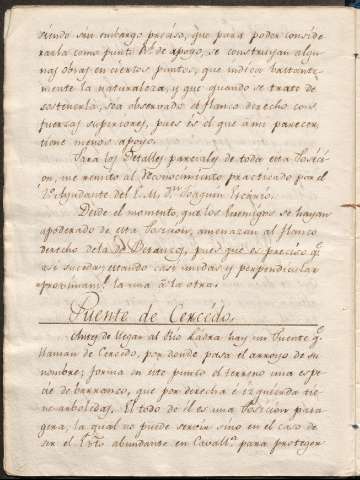 siendo sin embargo preciso, que para poder conside
rarla como punto de apoyo, se construyan algu
nas obras en ciertos puntos, que indica bastante
mente la naturaleza, y que quando se trate de
sostenerla, sea observado el flanco derecho con
fuerzas superiores, pues es el que á mi parecer
tiene menos apoyo.
Para los Detalles parciales de toda esta Posici
on, me remito al Reconocimiento practicado por el
2º Ayudante del E. M. Dn Joaquin
Desde el momento, que los Enemigos se hayan
apoderado de esta Posicion, amenazan al flanco
derecho de la de pues que es preciso q.
asi suceda, estando casi unidas y perpendicular
aproximam.te la una á la otra.
Puente de Cercedo.
Antes de llegar al Rio hay un Puente q.
llaman de Cercedo, por donde pasa el arroyo de su
nombre; forma en este punto el terreno una espe
cie de barranco, que por derecha é izquierda tie
ne arboledas. El todo de él es una Posicion pasa
gera, la qual no puede servir sino en el caso de
ser el Exto abundante en Cavall.a para proteger